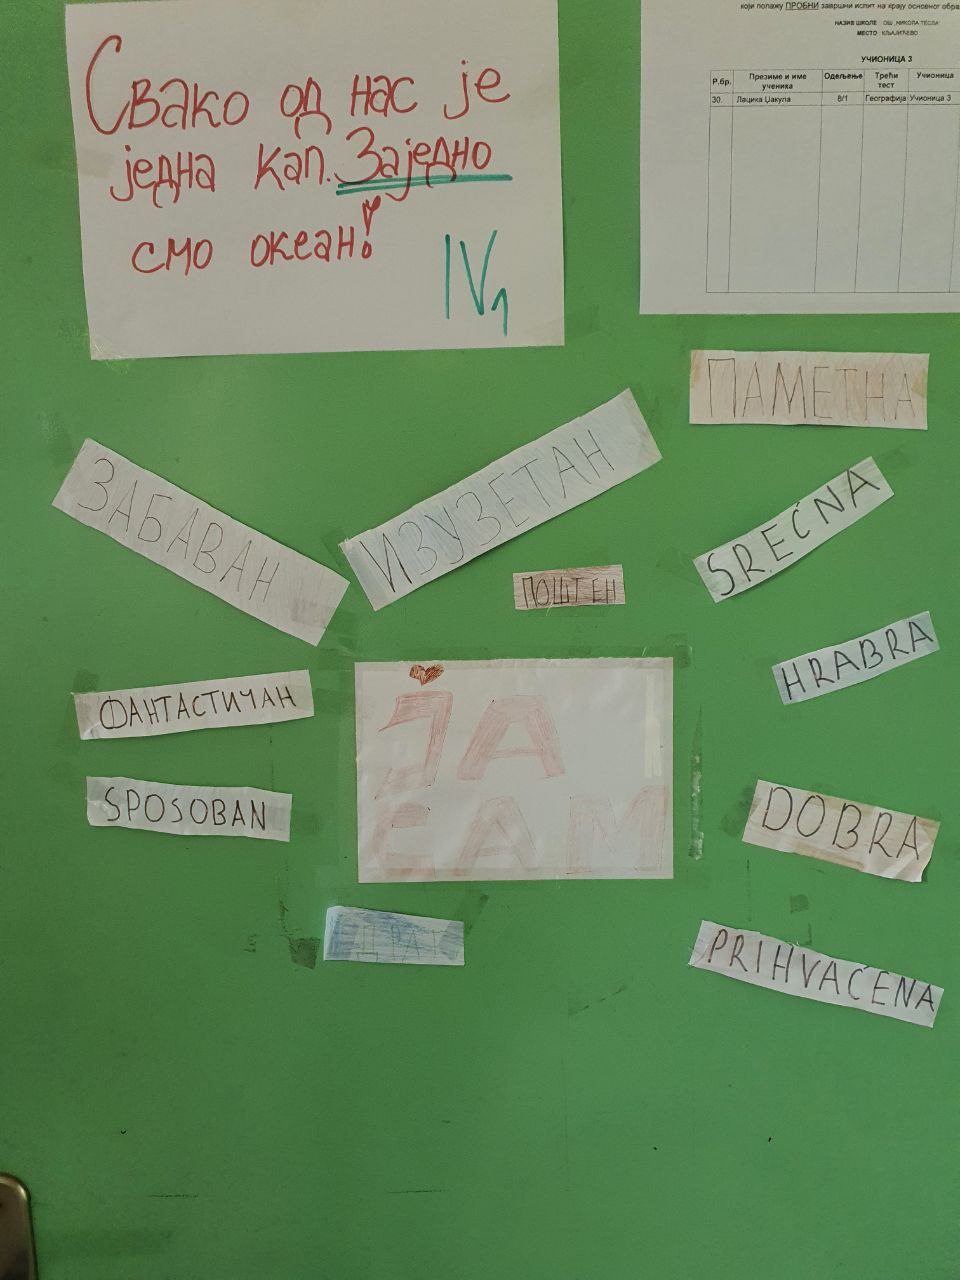 Свако од нас је
једна кап. Заједно
смо океан!
IV1
који полажу ПРОБНИ завршни испит на крају основног обра
НАЗИВ ШКОЛЕ ОШ „НИКОЛА ТЕСЛА“
МЕСТО КЉАЈИЋЕВО
УЧИОНИЦА 3
Р.бр. Презиме и име ученика Одељење Трећи тест Учионица
30. Лацика Џакула 8/1 Географија Учионица 3
ПАМЕТНА
ЗАБАВАН
ИЗУЗЕТАН
SREĆNA
ПОШТЕН
HRABRA
ФАНТАСТИЧАН
SPOSOBAN
ЈА
САМ
DOBRA
ДРАГ
PRIHVAĆENA